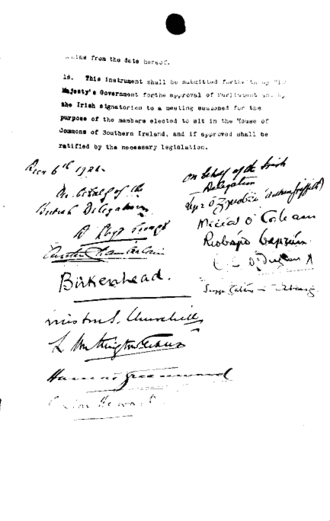 from the date hereof.
18. This instrument shall be submitted forthwith by His
Majesty's Government for the approval of Parliament and by
the Irish signatories to a meeting summoned for the
purpose of the members elected to sit in the House of
Commons of Southern Ireland, and if approved shall be
ratified by the necessary legislation.
Decr 6th 1921.
On behalf of the
British Delegation
D Lloyd George
Austen Chamberlain
Birkenhead.
Winston S. Churchill
L Worthington Evans
Hamar Greenwood
Gordon Hewart
On behalf of the Irish
Delegation
Art Ó Gríobhtha (Arthur Griffith)
Micheál Ó Coileain
Riobárd Bartún